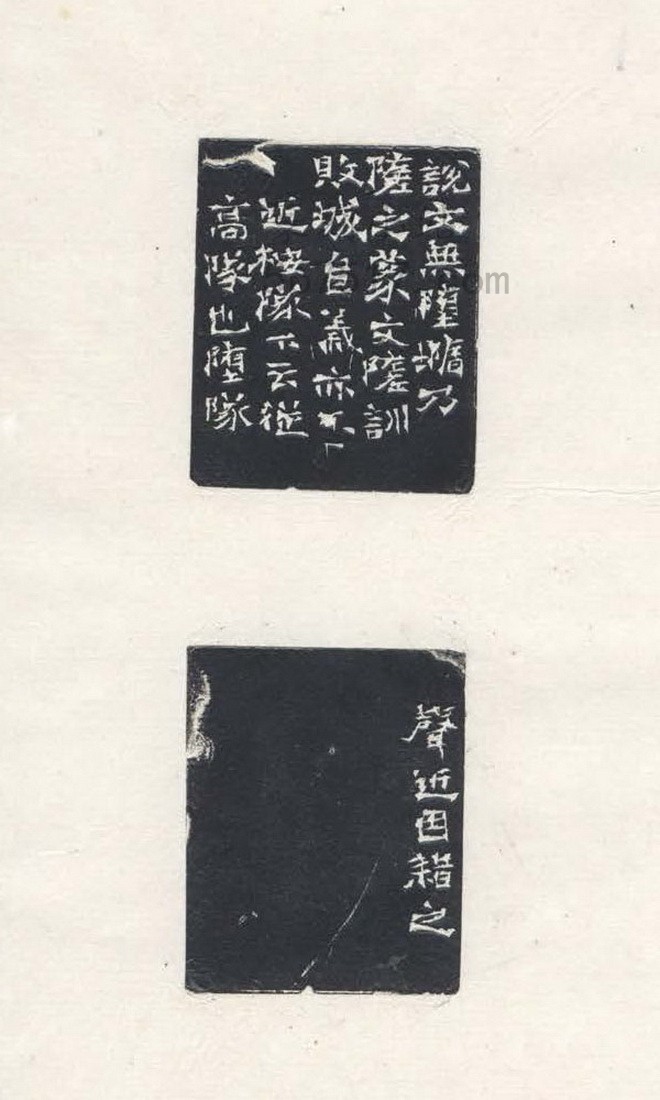 說文無墮墯乃
隓之篆文隓訓
敗城𠂤義亦不
近按隊下云從
高隊也墮隊
聲近因耤之